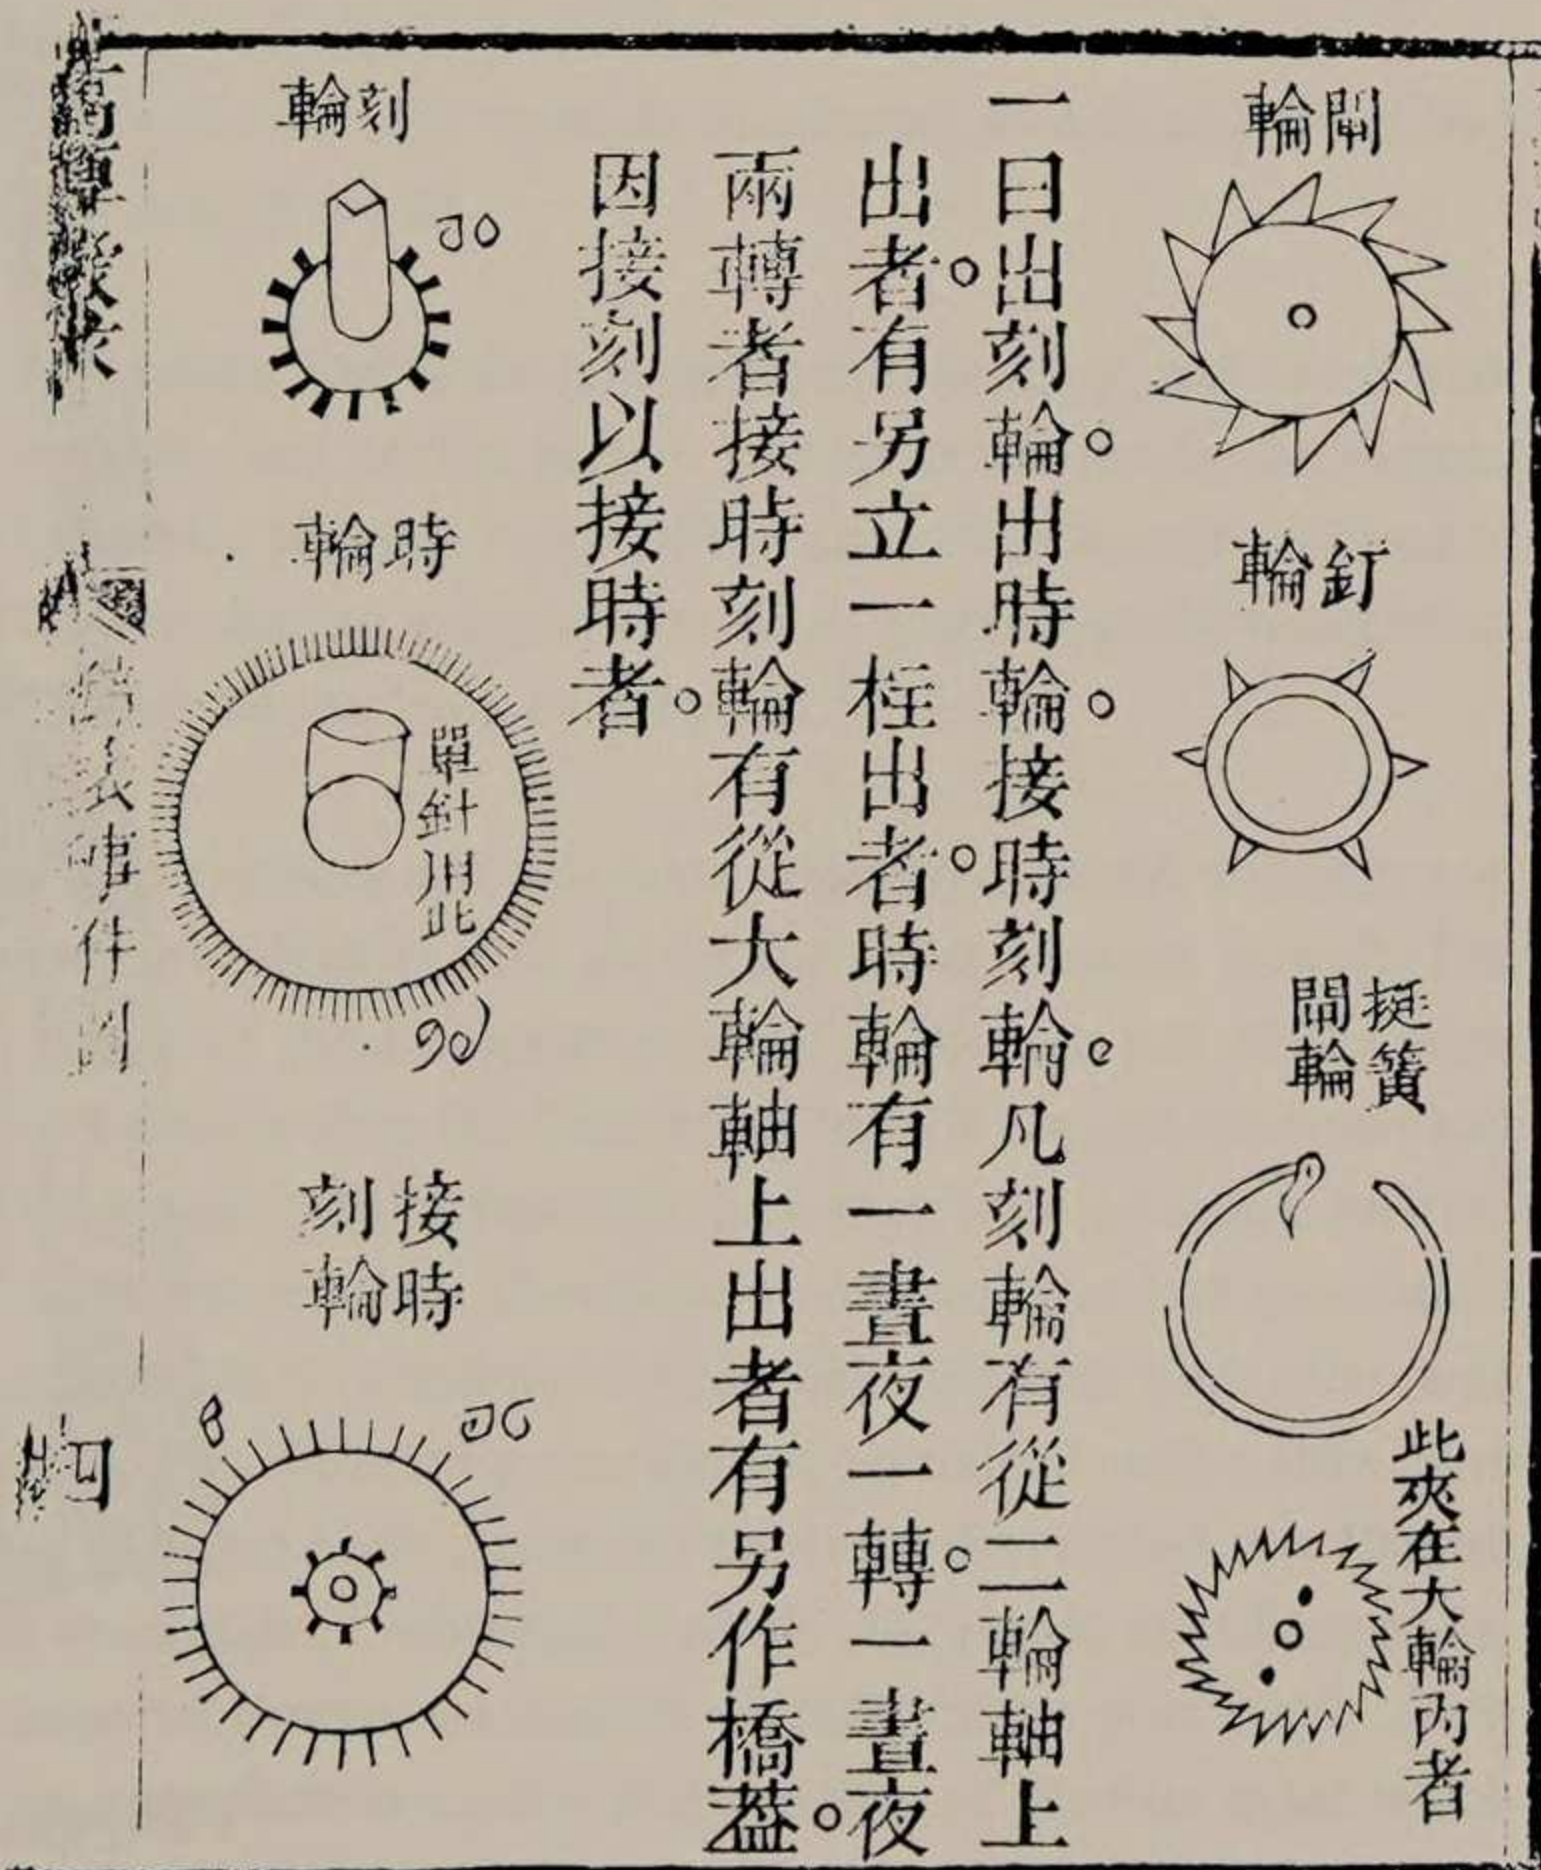 閘輪
釘輪
挺簧
閘輪
此夾在大輪內者
一曰出刻輪。出時輪。接時刻輪。凡刻輪有從二輪軸上
出者。有另立一柱出者。時輪有一晝夜一轉。一晝夜
兩轉者接時刻輪有從大輪軸上出者有另作橋葢。
因接刻以接時者。
刻輪
時輪
單針用此
接時
刻輪
表事件圖
四